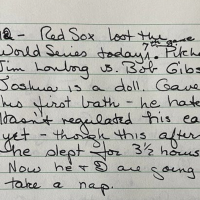 12 - Red Sox lost the 7th game
World Series today. Pitche
Jim Lonborg vs. Bob Gibs
Joshua is a doll. Gave
his first bath - he hate
Hasn't regulated his ea
yet - though this after
he slept for 3½ hours
Now he + I are going
take a nap.